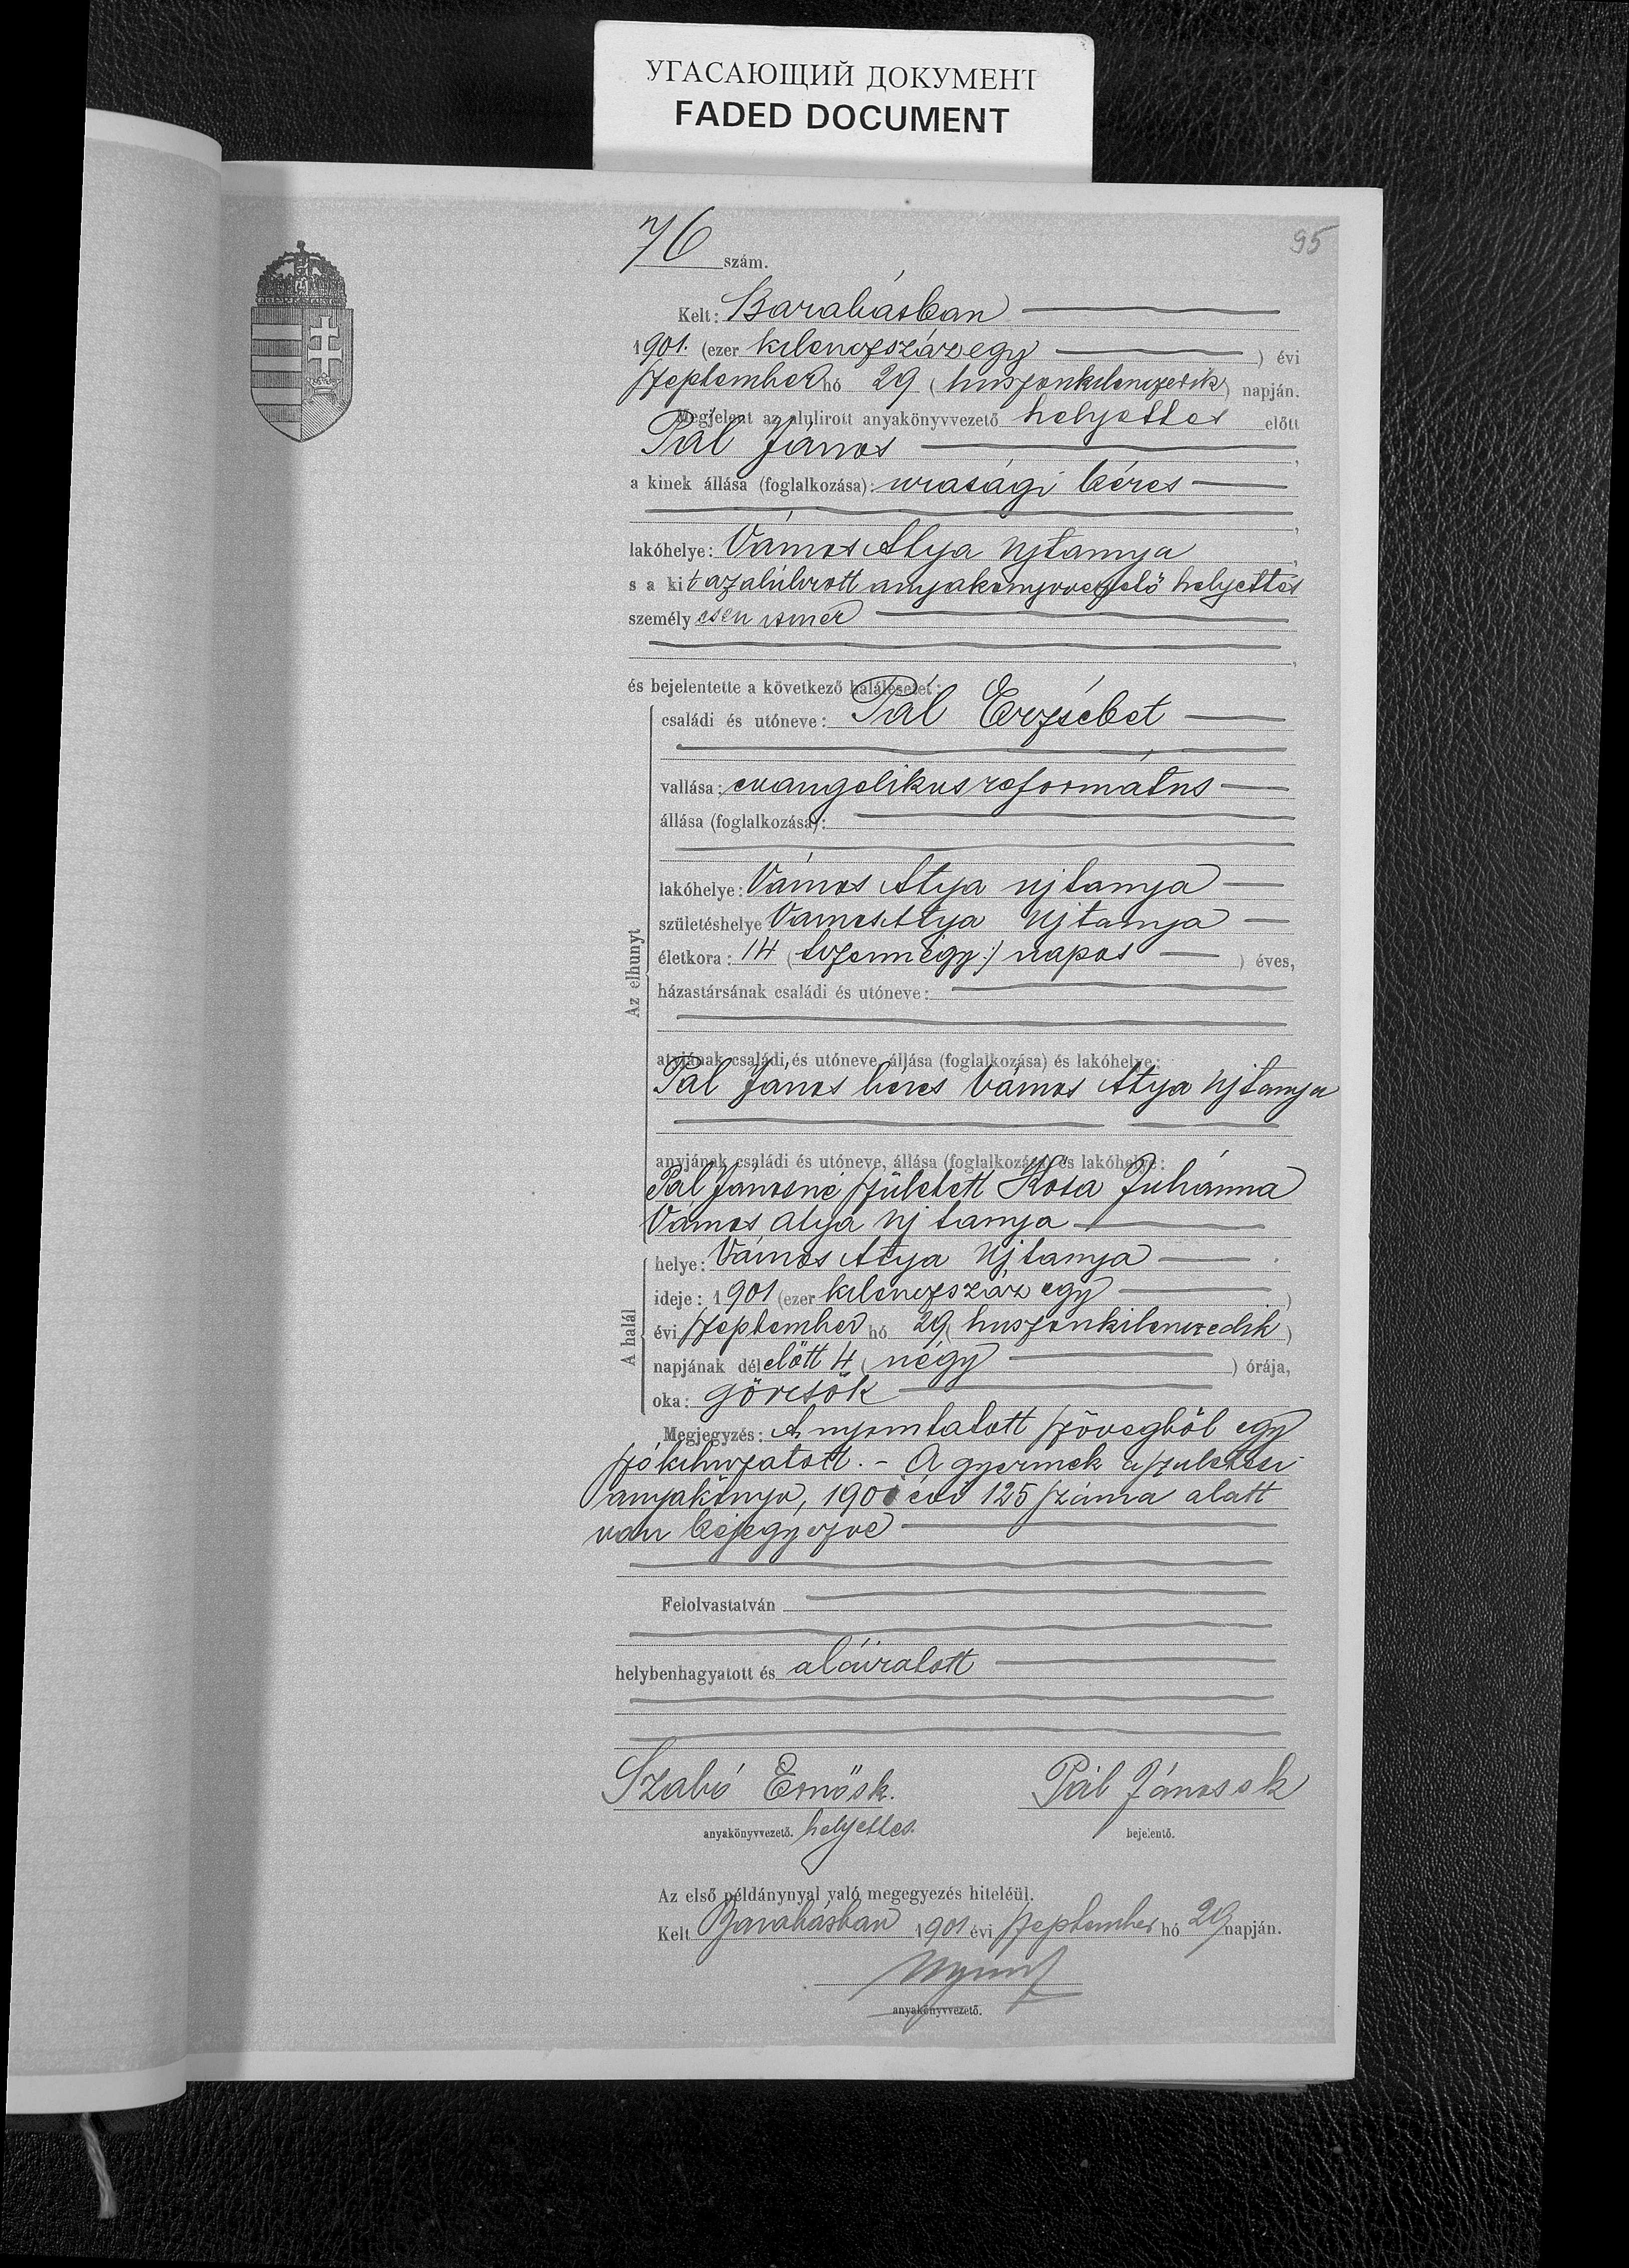 УГАСАЮЩИЙ ДОКУМЕНТ
FADED DOCUMENT
95
76 szám.
Kelt: Barabásban
1901. (ezer kilenczszázegy ) évi
szeptember hó 29 (huszonkilenczedik) napján.
Megjelent az alulirott anyakönyvvezető helyettes előtt
Pál János ,
a kinek állása (foglalkozása): urasági béres
,
lakóhelye: Vámos Atya ujtanya ,
s a kit az alúlirott anyakönyvvezető helyettes
személyesen ismer
,
és bejelentette a következő halálesetet:
Az elhunyt
családi és utóneve: Pál Erzsébet
vallása: evangelikus református
állása (foglalkozása):
lakóhelye: Vámos Atya ujtanya
születéshelye Vamos Atya Ujtanya
életkora: 14 (tizennégy:/ napos ) éves,
házastársának családi és utóneve:
atyjának családi és utóneve, állása (foglalkozása) és lakóhelye:
Pál János béres Vámos Atya Ujtanya
anyjának családi és utóneve, állása (foglalkozása) és lakóhelye:
Pál Jánosné született Kósa Juliánna
Vámos atya Uj tanya
A halál
helye: Vámos Atya Uj tanya
ideje: 1901 (ezer kilenczszáz egy )
évi szeptember hó 29 (huszonkilenczedik)
napjának délelőtt 4 (négy ) órája,
oka: görcsök
Megjegyzés: A nyomtatott szövegből egy
szó kihuzatott. - A gyermek a születési
anyakönyv, 1901 évi 125 száma alatt
van bejegyezve
Felolvastatván
helybenhagyatott és aláiratott
Szabó Ernő sk. Pál János sk
anyakönyvvezető. helyettes. bejelentő.
Az első példánynyal való megegyezés hiteléül.
Kelt Barabásban 1901 évi szeptember hó 29 napján.
anyakönyvvezető.